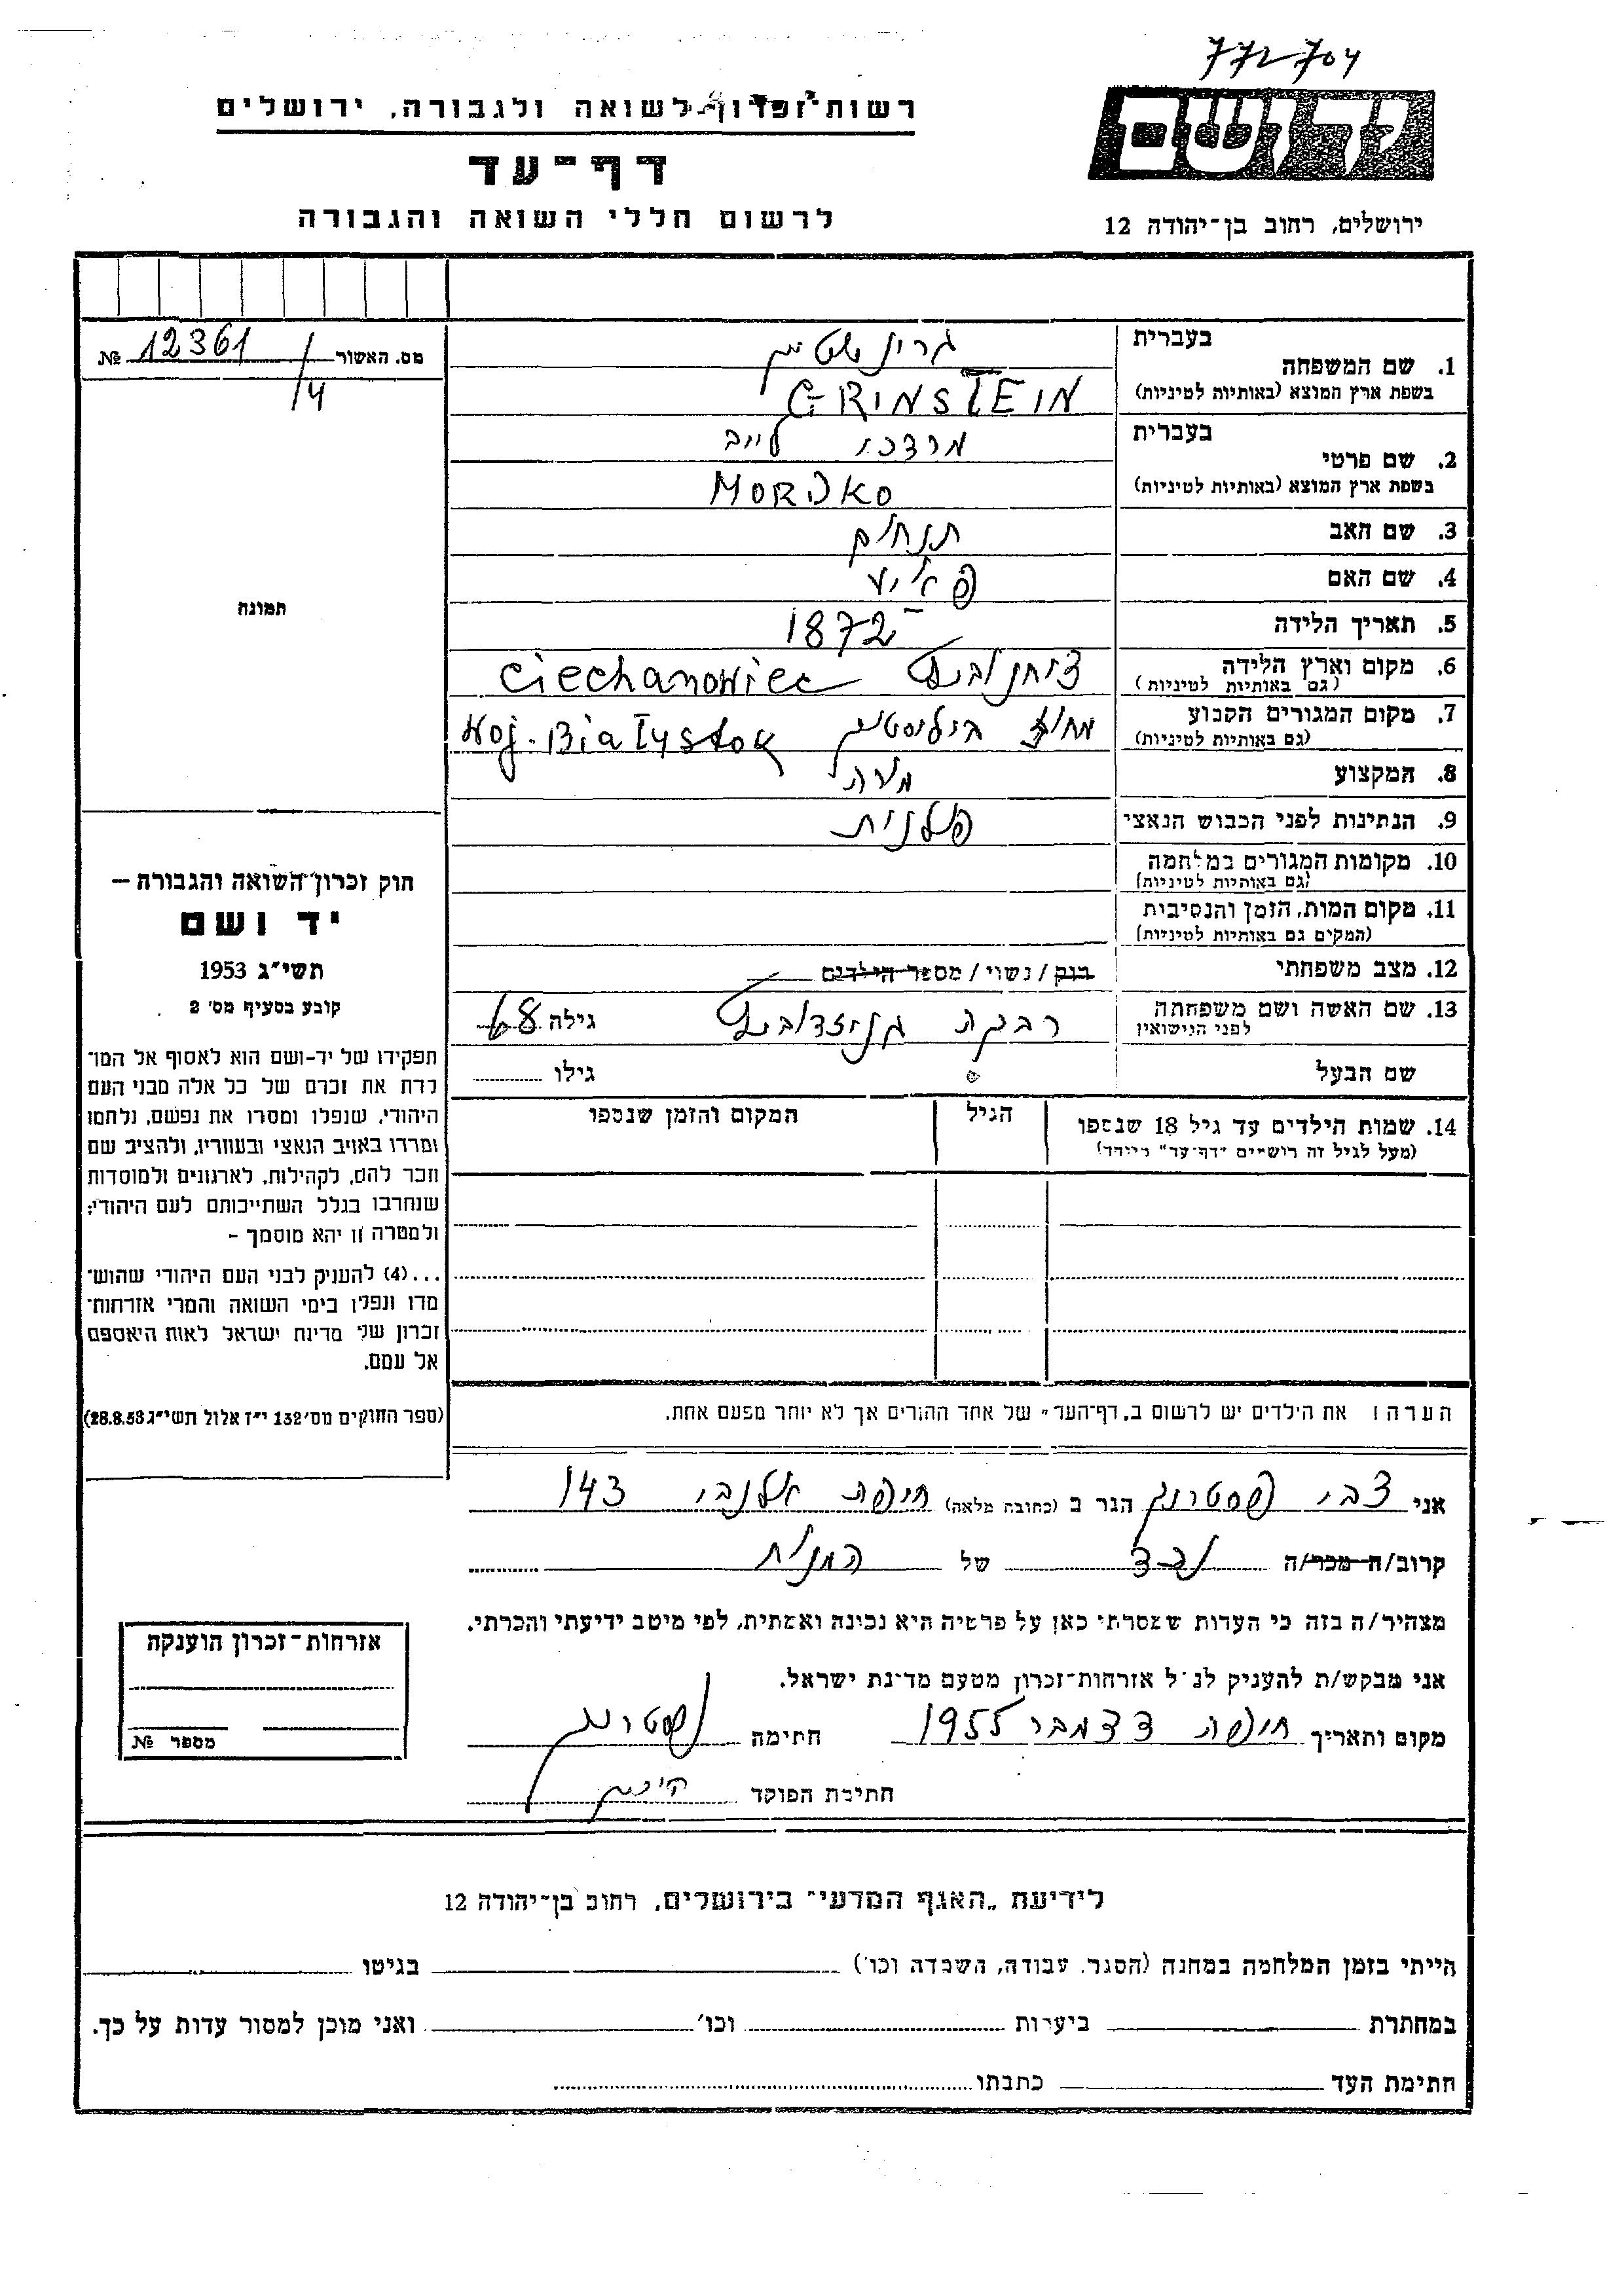 772704
רשות-זכרון לשואה ולגבורה, ירושלים
דף-עד
לרשום חללי השואה והגבורה
יד ושם
ירושלים, רחוב בן-יהודה 12
מס. האשור 12361/4 №
1. שם המשפחה
בעברית גרינשטיין
בשפת ארץ המוצא (באותיות לטיניות) GRINSTEIN
2. שם פרטי
בעברית מרדכי לייב
בשפת ארץ המוצא (באותיות לטיניות) MORDKO
3. שם האב תנחום
4. שם האם
5. תאריך הלידה 1872
6. מקום וארץ הלידה
(גם באותיות לטיניות) Ciechanowiec
7. מקום המגורים הקבוע
(גם באותיות לטיניות) מחוז ביליסטוק Woj. Białystok
8. המקצוע
9. הנתינות לפני הכבוש הנאצי פולנית
10. מקומות המגורים במלחמה
(גם באותיות לטיניות)
11. מקום המות, הזמן והנסיבות
(המקים גם באותיות לטיניות)
12. מצב משפחתי רווק / נשוי / מספר הילדים
13. שם האשה ושם משפחתה
לפני הנישואין רבקה גילה 68
שם הבעל גילו
14. שמות הילדים עד גיל 18 שנספו הגיל המקום והזמן שנספו
(מעל לגיל זה רושמים "דף-עד" מיוחד)
תמונה
חוק זכרון השואה והגבורה –
יד ושם
תשי"ג 1953
קובע בסעיף מס' 2
תפקידו של יד-ושם הוא לאסוף אל המו-
לדת את זכרם של כל אלה מבני העם
היהודי, שנפלו ומסרו את נפשם, נלחמו
ומרדו באויב הנאצי ובעוזריו, ולהציב שם
וזכר להם, לקהילות, לארגונים ולמוסדות
שנחרבו בגלל השתייכותם לעם היהודי;
ולמטרה זו יהא מוסמך -
...(4) להעניק לבני העם היהודי שהוש-
מדו ונפלו בימי השואה והמרי אזרחות-
זכרון של מדינת ישראל לאות היאספם
אל עמם.
(ספר החוקים מס' 132 י"ז אלול תשי"ג 28.8.53)
הערה: את הילדים יש לרשום ב"דף-העד" של אחד ההורים אך לא יותר מפעם אחת.
אני צבי פסטרנק הגר ב (כתובת מלאה) חיפה אלנבי 143
קרוב/ה מכר/ה נכד של המנוח
מצהיר/ה בזה כי העדות שמסרתי כאן על פרטיה היא נכונה ואמתית, לפי מיטב ידיעתי והכרתי.
אני מבקש/ת להעניק לנ"ל אזרחות-זכרון מטעם מדינת ישראל.
מקום ותאריך חיפה דצמבר 1955 חתימה פסטרנק
חתימת הפוקד
אזרחות-זכרון הוענקה
מספר №
לידיעת "האגף המדעי" בירושלים, רחוב בן-יהודה 12
הייתי בזמן המלחמה במחנה (הסגר, עבודה, השמדה וכו') בגיטו
במחתרת ביערות וכו' ואני מוכן למסור עדות על כך.
חתימת העד כתבתו